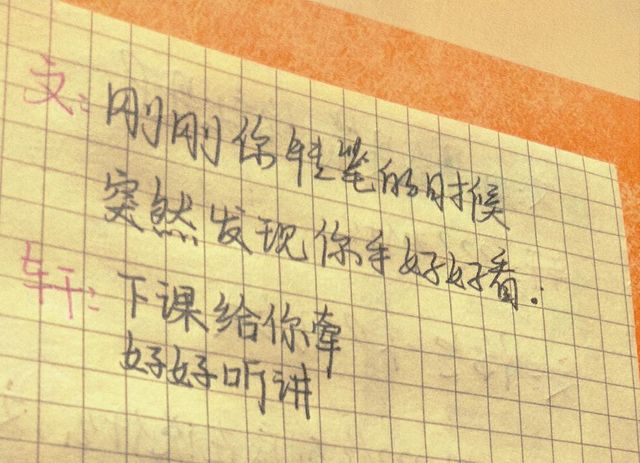 文：刚刚你转笔的时候
突然发现你手好好看.
轩：下课给你牵
好好听讲